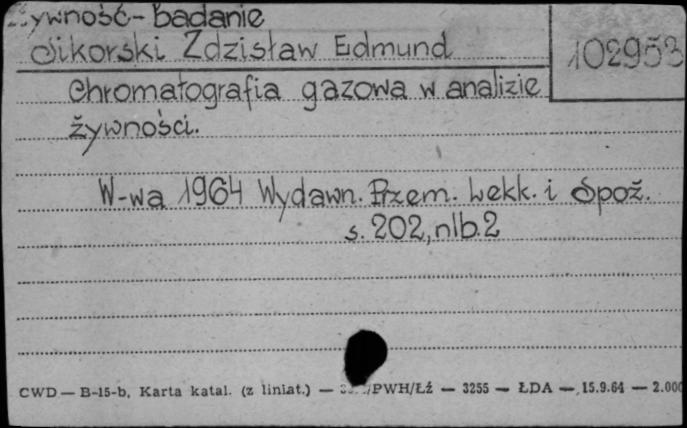 Żywność - badanie
Sikorski Zdzisław Edmund
102953
Chromatografia gazowa w analizie
żywności.
W-wa 1964 Wydawn. Przem. Lekk. i Spoż.
s. 202, nlb. 2
CWD — B-15-b, Karta katal. (z liniat.) — /PWH/Łź — 3255 — ŁDA — 15.9.64 — 2.000